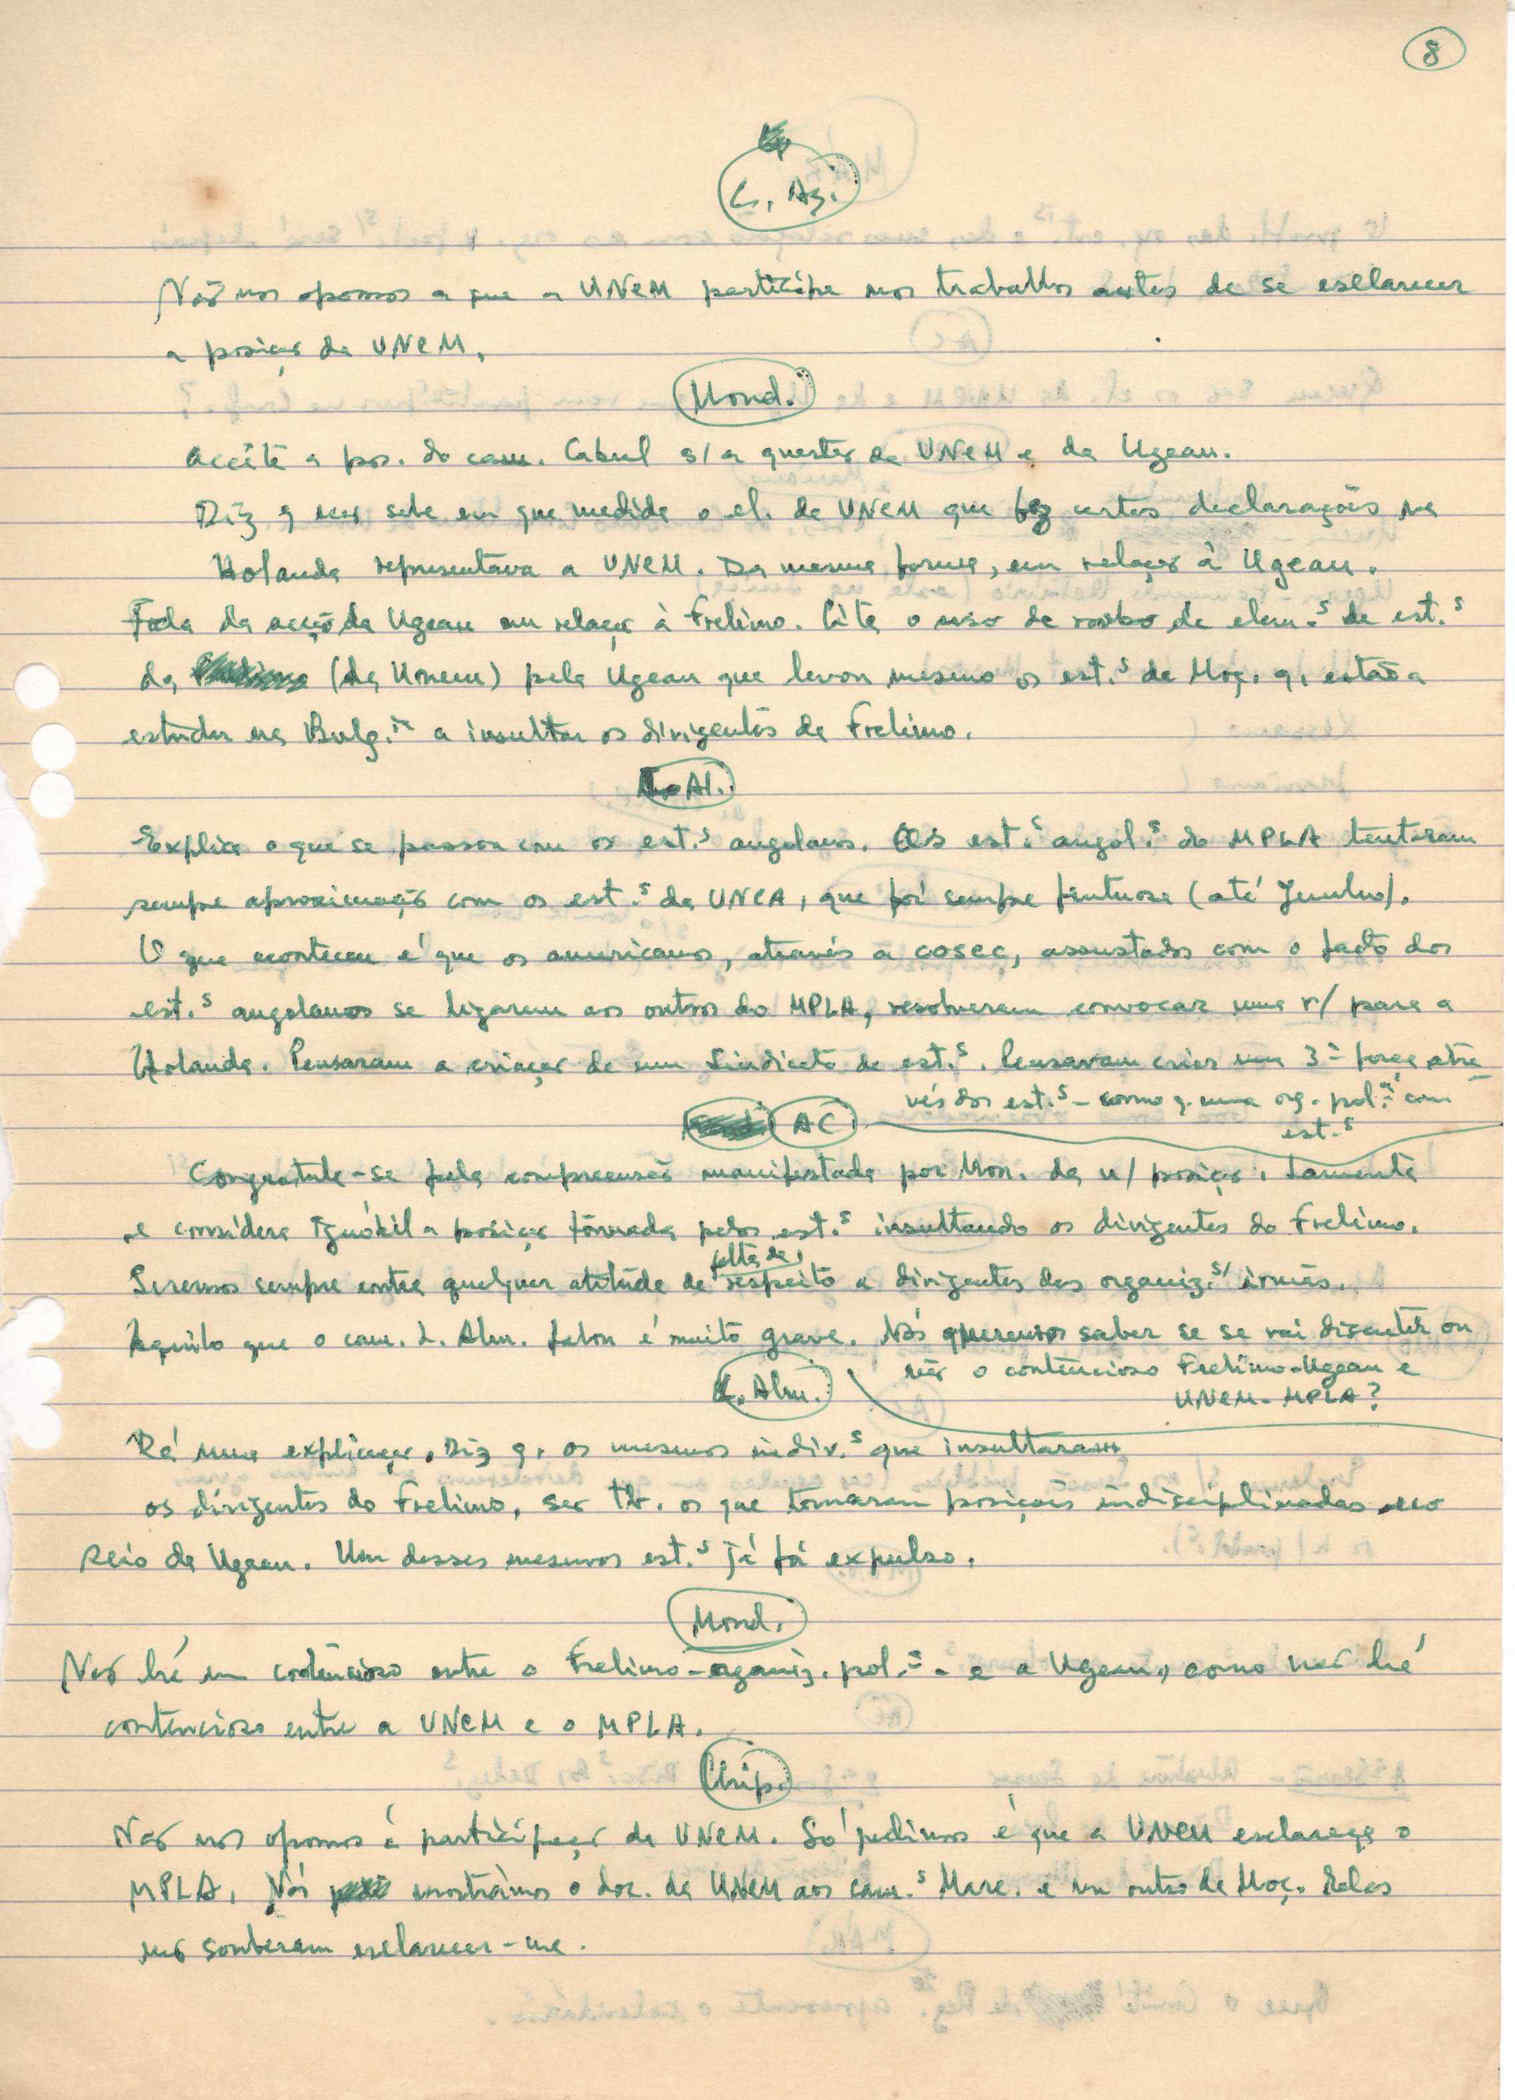 8
L. Az.
Não nos opomos a que a UNEM participe nos trabalhos antes de se esclarecer
a posição da UNEM.
Mond.
Aceite a pos. do cam. Cabral s/ a questão da UNEM e da Ugean.
Diz q não sabe em que medida o el. da UNEM que fez certas declarações na
Holanda representava a UNEM. Da mesma forma, em relação à Ugean.
Fala da acção da Ugean em relação à Frelimo. Cita o caso de roubo de elem.s de est.s
da (da Unem) pela Ugean que levou mesmo os est.s de Moç. q. estão a
estudar na Bulg.ia a insultar os dirigentes da Frelimo.
L. Al.
Explica o que se passou com os est.s angolanos. Os est.s angol.s do MPLA tentaram
sempre aproximação com os est.s da UNEA, que foi sempre (até Junho).
O que aconteceu é que os americanos, através a COSEC, assustados com o facto dos
est.s angolanos se ligarem aos outros do MPLA, resolveram convocar uma r/ para a
Holanda. Pensaram a criação de um Sindicato de est.s. Pensavam criar uma 3ª força atra-
vés dos est.s - como q. uma org. pol.ª com
est.s
AC
Congratula-se pela compreensão manifestada por Mon. da n/ posição. Lamenta
e considera ignóbil a posição tomada pelos est.s insultando os dirigentes da Frelimo.
Seremos sempre contra qualquer atitude de falta de respeito a dirigentes das organiz.s/ irmãs.
Aquilo que o cam. L. Alm. falou é muito grave. Nós queremos saber se se vai discutir ou
não o contencioso Frelimo-Ugean e
UNEM-MPLA?
L. Alm.
Dá uma explicação. Diz q. os mesmos indiv.s que insultaram
os dirigentes da Frelimo, são tb. os que tomaram posições indisciplinadas no
seio da Ugean. Um desses mesmos est.s já foi expulso.
Mond.
Não há um contencioso entre a Frelimo - organiz. pol.ª - e a Ugean, como não há
contencioso entre a UNEM e o MPLA.
Chip.
Não nos opomos à participação da UNEM. Só pedimos é que a UNEM esclareça o
MPLA. Nós mostrámos o doc. da UNEM aos cam.s Marc. e um outro de Moç. Eles
não souberam esclarecer-me.